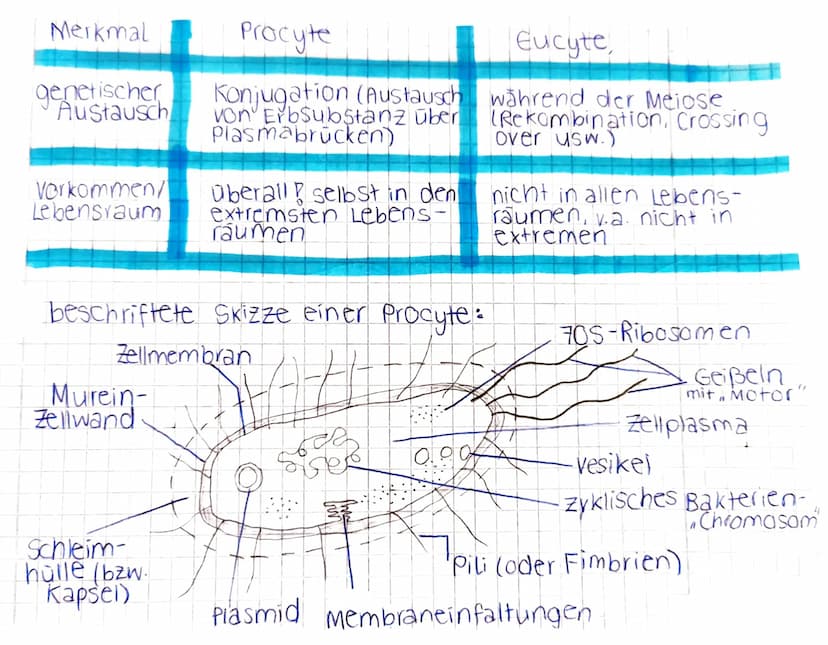 Merkmal
Procyte
Eucyte,
genetischer
Austausch
Konjugation (Austausch
von Erbsubstanz über
Plasmabrücken)
während der Meiose
(Rekombination, Crossing
over usw.)
Vorkommen/
Lebensraum
überall! selbst in den
extremsten Lebens-
räumen
nicht in allen Lebens-
räumen, v.a. nicht in
extremen
beschriftete Skizze einer Procyte:
Zellmembran
70S-Ribosomen
Murein-
Zellwand
Geißeln
mit „Motor"
Zellplasma
Vesikel
zyklisches Bakterien-
„Chromosom"
Schleim-
hülle (bzw.
Kapsel)
Pili (oder Fimbrien)
Plasmid
Membraneinfaltungen